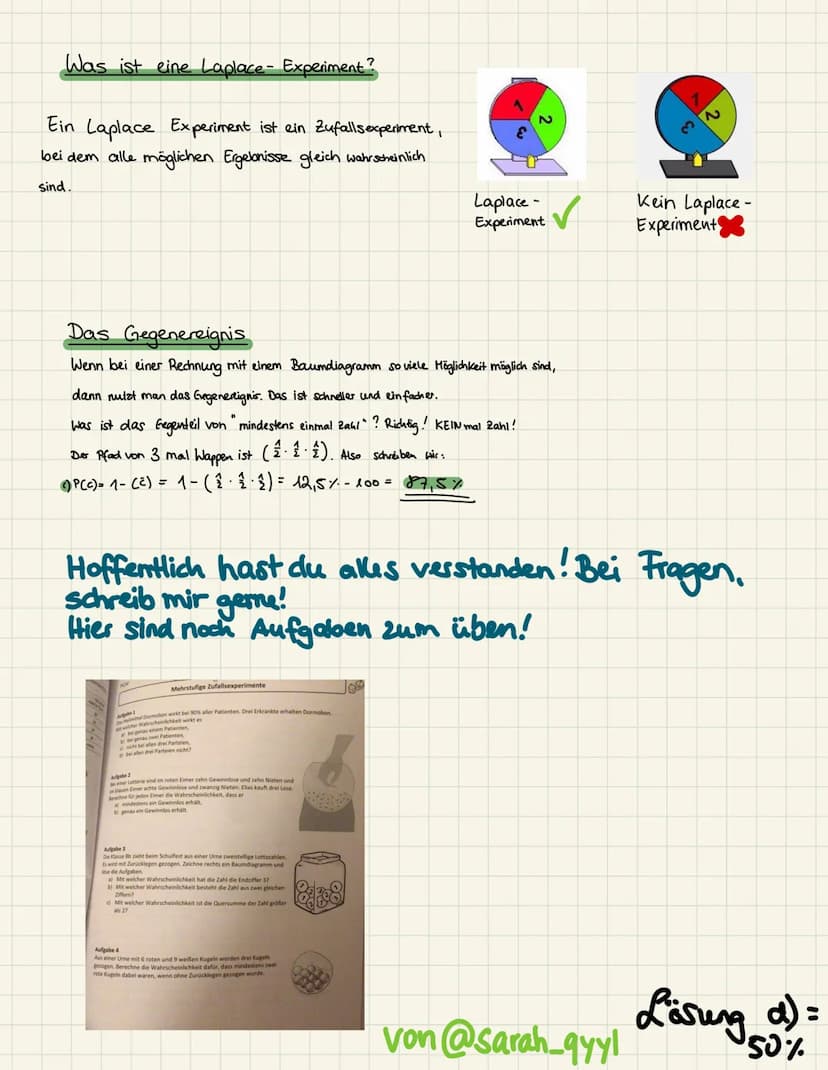 Was ist eine Laplace-Experiment?
Ein Laplace Experiment ist ein Zufallsexperiment,
bei dem alle möglichen Ergebnisse gleich wahrscheinlich
sind.
1
2
3
Laplace-
Experiment
1
2
3
Kein Laplace-
Experiment
Das Gegenereignis
Wenn bei einer Rechnung mit einem Baumdiagramm so viele Möglichkeit möglich sind,
dann nutzt man das Gegenereignis. Das ist schneller und einfacher.
Was ist das Gegenteil von "mindestens einmal Zahl"? Richtig! KEIN mal Zahl!
Der Pfad von 3 mal Wappen ist (1/2 · 1/2 · 1/2). Also schreiben wir:
c) P(C) = 1 - (C̄) = 1 - (1/2 · 1/2 · 1/2) = 12,5% - 100 = 87,5%
Hoffentlich hast du alles verstanden! Bei Fragen,
schreib mir gerne!
Hier sind noch Aufgaben zum üben!
Mehrstufige Zufallsexperimente
Aufgabe 1
wirkt bei 90% aller Patienten. Drei Erkrankte erhalten Dormoben.
Mit welcher Wahrscheinlichkeit wirkt es
a) bei genau einem Patienten,
b) bei genau zwei Patienten,
c) nicht bei allen drei Parteien,
d) bei allen drei Parteien nicht?
Aufgabe 2
Bei einer Lotterie sind im roten Eimer zehn Gewinnlose und zehn Nieten und
im blauen Eimer achte Gewinnlose und zwanzig Nieten. Elias kauft drei Lose.
Berechne für jeden Eimer die Wahrscheinlichkeit, dass er
a) mindestens ein Gewinnlos erhält,
b) genau ein Gewinnlos erhält.
Aufgabe 3
Die Klasse 8b zieht beim Schulfest aus einer Urne zweistellige Lottozahlen.
Es wird mit Zurücklegen gezogen. Zeichne rechts ein Baumdiagramm und
löse die Aufgaben.
a) Mit welcher Wahrscheinlichkeit hat die Zahl die Endziffer 3?
b) Mit welcher Wahrscheinlichkeit besteht die Zahl aus zwei gleichen
Ziffern?
c) Mit welcher Wahrscheinlichkeit ist die Quersumme der Zahl größer
als 2?
Aufgabe 4
Aus einer Urne mit 6 roten und 9 weißen Kugeln werden drei Kugeln
gezogen. Berechne die Wahrscheinlichkeit dafür, dass mindestens zwei
rote Kugeln dabei waren, wenn ohne Zurücklegen gezogen wurde.
Lösung d) =
50%
von @sarah_qyyl